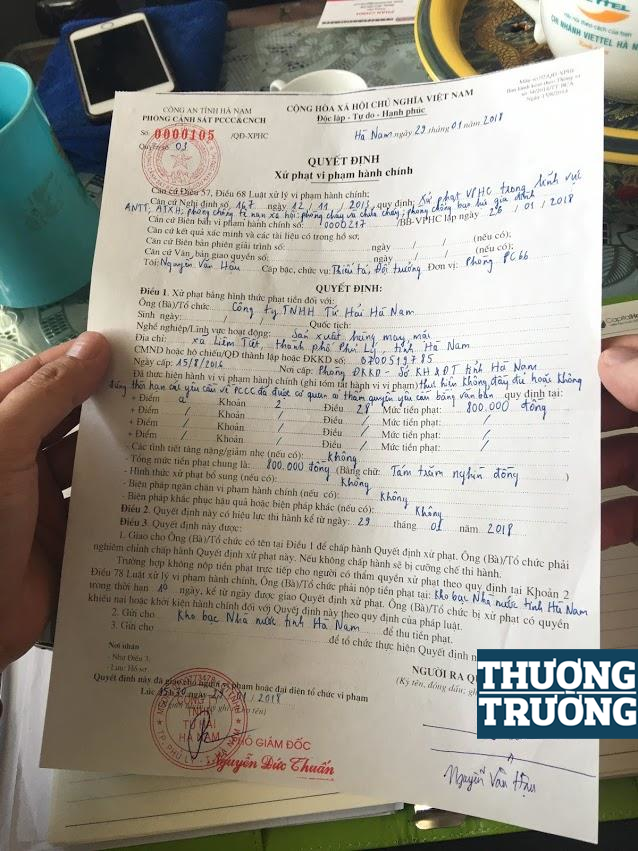 CÔNG AN TỈNH HÀ NAM
PHÒNG CẢNH SÁT PCCC&CNCH
CỘNG HÒA XÃ HỘI CHỦ NGHĨA VIỆT NAM
Độc lập - Tự do - Hạnh phúc
Số: 0000105 /QĐ-XPHC
Quyển số 03
Hà Nam, ngày 29 tháng 01 năm 2018
QUYẾT ĐỊNH
Xử phạt vi phạm hành chính
Căn cứ Điều 57, Điều 68 Luật xử lý vi phạm hành chính;
Căn cứ Nghị định số 167 ngày 12/11/2013 quy định: Xử phạt VPHC trong lĩnh vực
ANTT; ATXH; phòng chống tệ nạn xã hội; phòng cháy và chữa cháy; phòng chống bạo lực gia đình
Căn cứ Biên bản vi phạm hành chính số: 0000217 /BB-VPHC lập ngày 26/01/2018
Căn cứ kết quả xác minh và các tài liệu có trong hồ sơ;
Căn cứ Biên bản phiên giải trình số: ngày / / (nếu có);
Căn cứ Văn bản giao quyền số: ngày / / (nếu có);
Tôi: Nguyễn Văn Hậu Cấp bậc, chức vụ: Thiếu tá, Đội trưởng Đơn vị: Phòng PC66
QUYẾT ĐỊNH:
Điều 1. Xử phạt bằng hình thức phạt tiền đối với:
Ông (Bà)/Tổ chức: Công ty TNHH Tứ Hải Hà Nam
Sinh ngày / / Quốc tịch:
Nghề nghiệp/Lĩnh vực hoạt động: Sản xuất hàng may mặc
Địa chỉ: xã Liêm Tiết, thành phố Phủ Lý, tỉnh Hà Nam
CMND hoặc hộ chiếu/QĐ thành lập hoặc ĐKKD số: 0700519785
Ngày cấp: 15/8/2016 Nơi cấp: Phòng ĐKKD - Sở KH&ĐT tỉnh Hà Nam
Đã thực hiện hành vi vi phạm hành chính (ghi tóm tắt hành vi vi phạm) thực hiện không đầy đủ hoặc không
đúng thời hạn các yêu cầu về PCCC đã được cơ quan có thẩm quyền yêu cầu bằng văn bản quy định tại:
+ Điểm a Khoản 2 Điều 28 Mức tiền phạt: 800.000 đồng
+ Điểm / Khoản / Điều / Mức tiền phạt: /
+ Điểm / Khoản / Điều / Mức tiền phạt: /
+ Điểm / Khoản / Điều / Mức tiền phạt: /
- Các tình tiết tăng nặng/giảm nhẹ (nếu có): Không
- Tổng mức tiền phạt chung là: 800.000 đồng (Bằng chữ: Tám trăm nghìn đồng)
- Hình thức xử phạt bổ sung (nếu có): Không
- Biện pháp ngăn chặn vi phạm hành chính (nếu có): Không
- Biện pháp khắc phục hậu quả hoặc biện pháp khác (nếu có): Không
Điều 2. Quyết định này có hiệu lực thi hành kể từ ngày 29 tháng 01 năm 2018
Điều 3. Quyết định này được:
1. Giao cho Ông (Bà)/Tổ chức có tên tại Điều 1 để chấp hành Quyết định xử phạt. Ông (Bà)/Tổ chức phải
nghiêm chỉnh chấp hành Quyết định xử phạt này. Nếu không chấp hành sẽ bị cưỡng chế thi hành.
Trường hợp không nộp tiền phạt trực tiếp cho người có thẩm quyền xử phạt theo quy định tại Khoản 2
Điều 78 Luật xử lý vi phạm hành chính, Ông (Bà)/Tổ chức phải nộp tiền phạt tại: Kho bạc Nhà nước tỉnh Hà Nam
trong thời hạn 10 ngày, kể từ ngày được giao Quyết định xử phạt. Ông (Bà)/Tổ chức bị xử phạt có quyền
khiếu nại hoặc khởi kiện hành chính đối với Quyết định này theo quy định của pháp luật.
2. Gửi cho Kho bạc Nhà nước tỉnh Hà Nam để thu tiền phạt.
3. Gửi cho để tổ chức thực hiện Quyết định
Nơi nhận
- Như Điều 3;
- Lưu: Hồ sơ.
NGƯỜI RA
(Ký tên, đóng dấu; ghi
Quyết định này đã giao cho người vi phạm hoặc đại diện tổ chức vi phạm
Lúc 15h30 ngày 29/01/2018
PHÓ GIÁM ĐỐC
Nguyễn Đức Thuấn
Nguyễn Văn Hậu
THƯƠNG
TRƯỜNG
CHI NHÁNH VIETTEL HÀ NAM